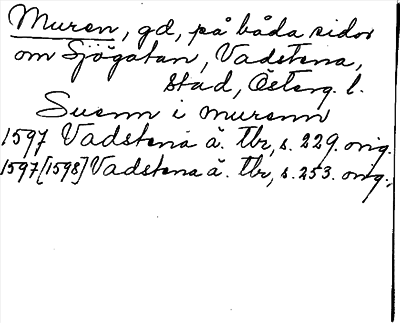 Muren, gd, på båda sidor
om Sjögatan, Vadstena,
stad, Österg. l.
Suenn i murenn
1597 Vadstena ä. Tbr, s. 229. orig.
1597[1598] Vadstena ä. Tbr, s. 253. orig.